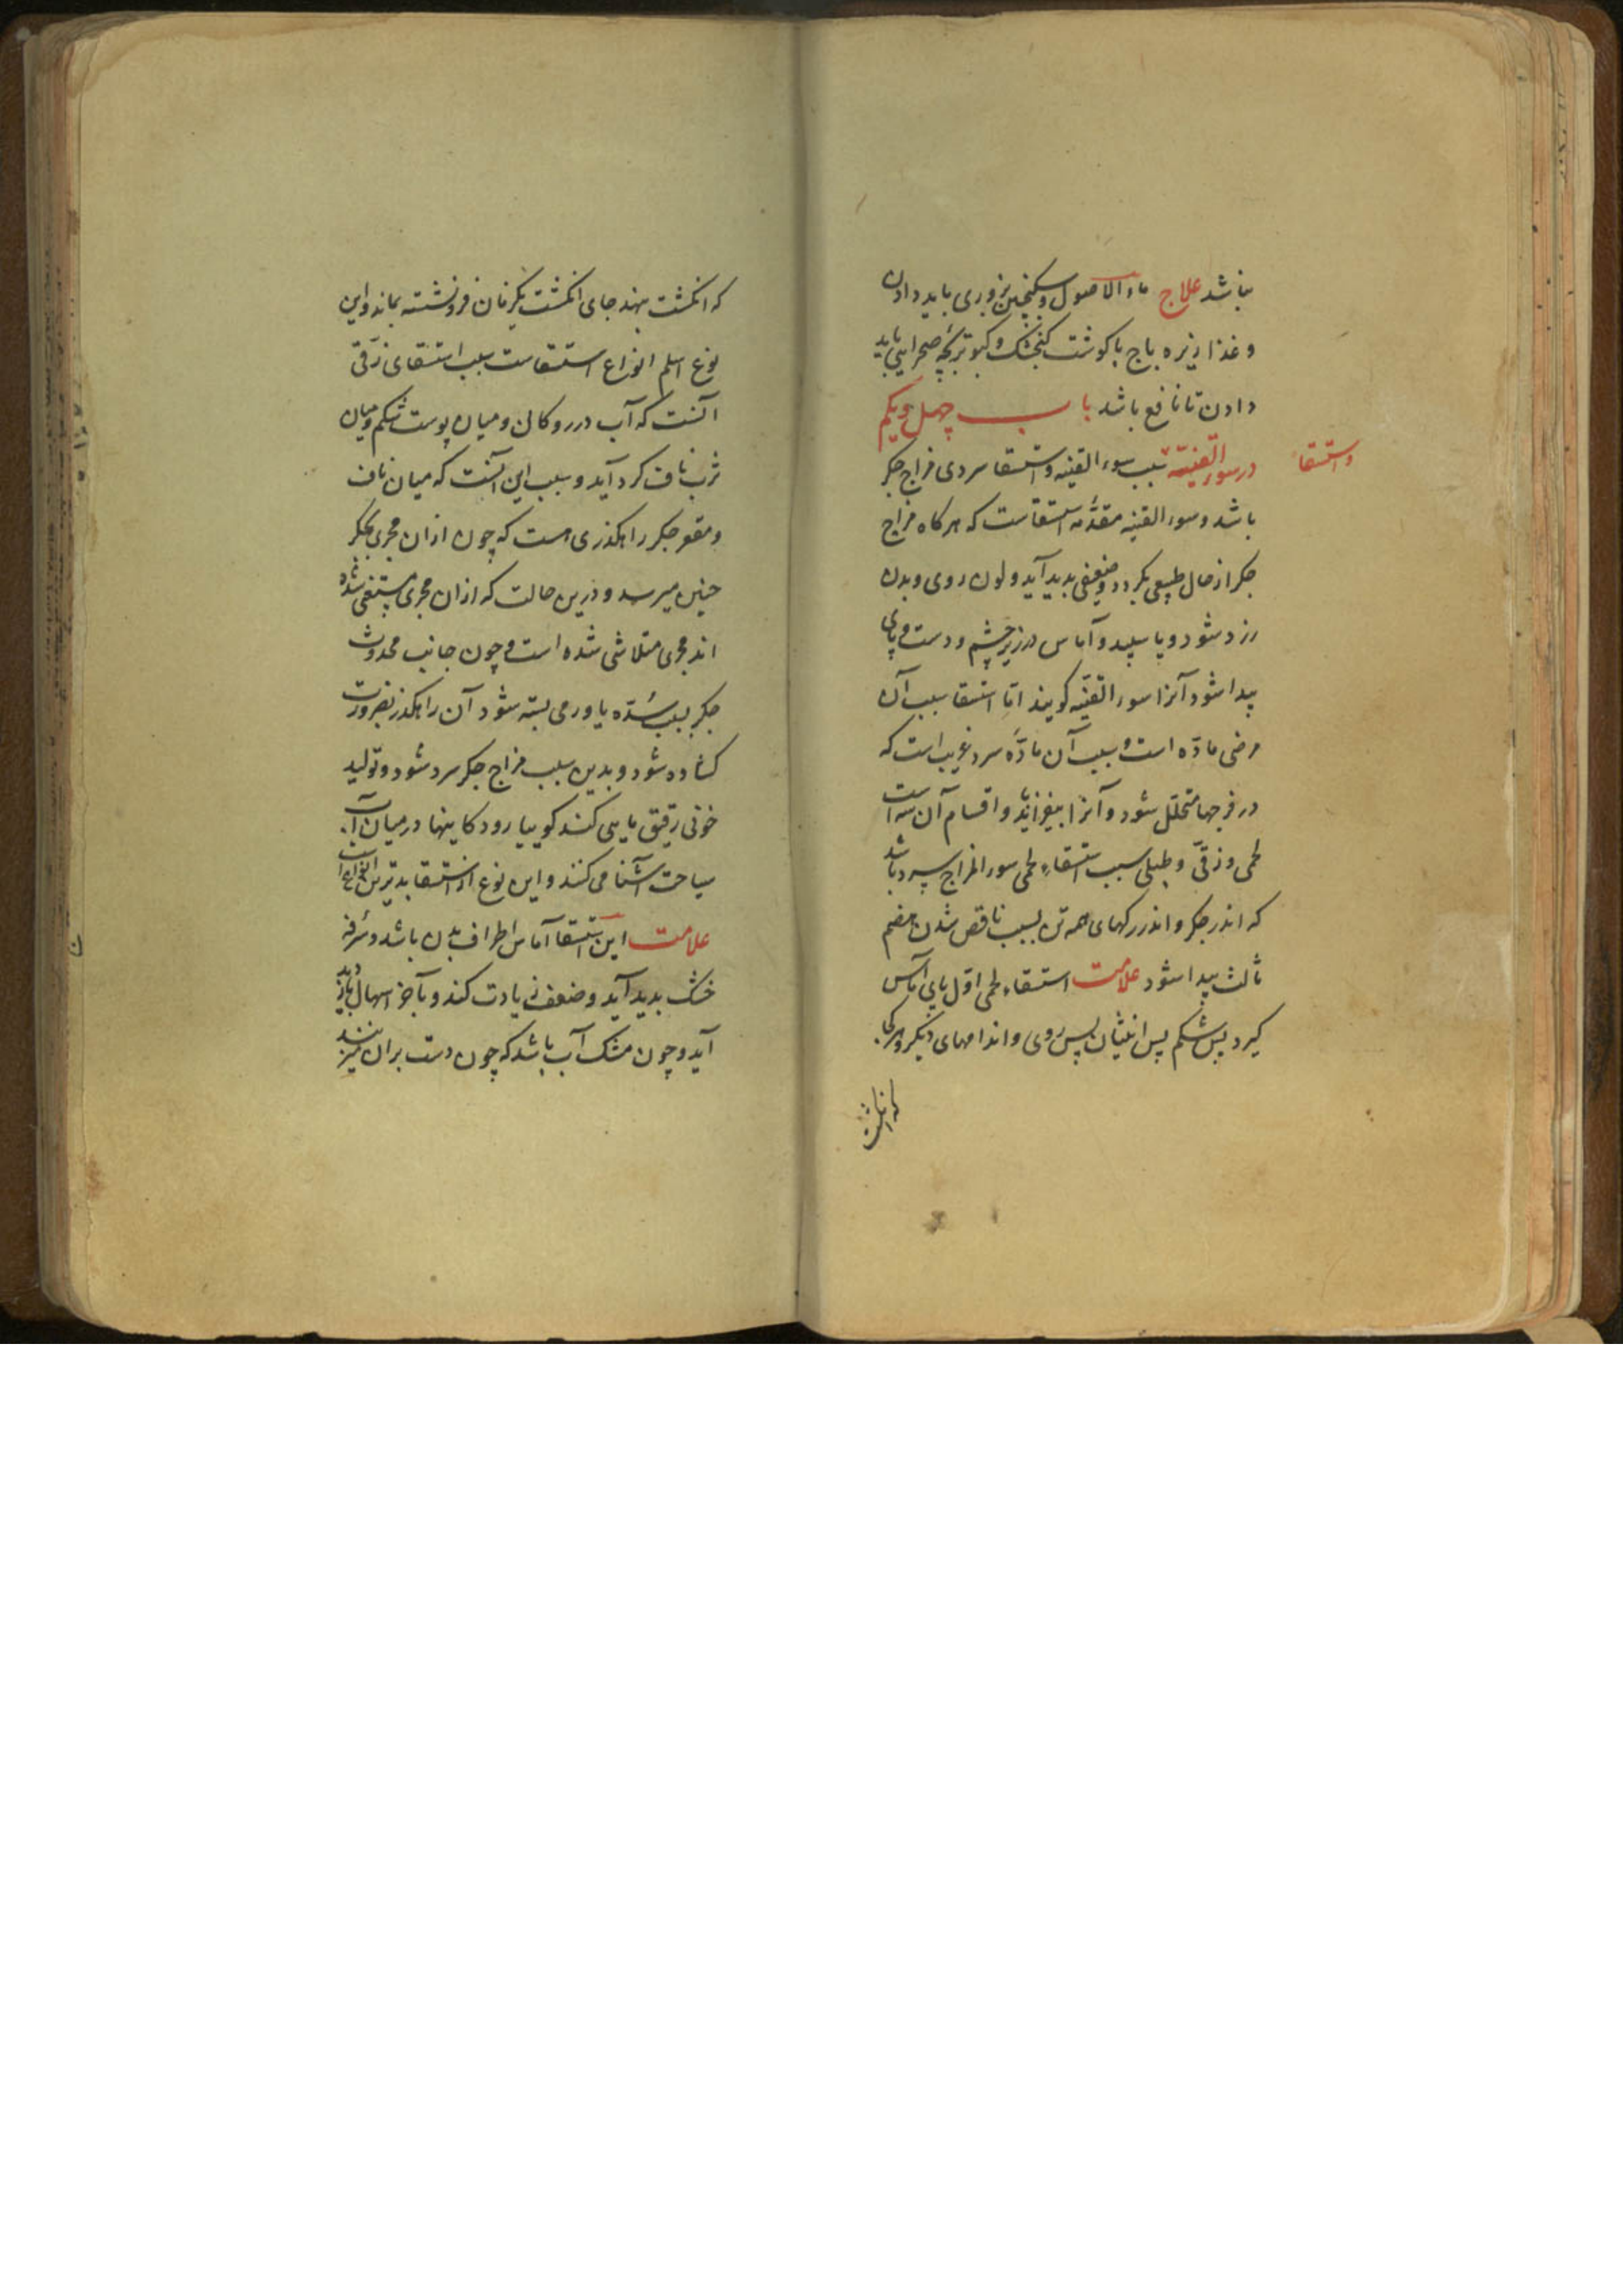 نباشد علاج ماء الاصول و سکنجبین بزوری باید دادن
و غذا زیره باج با کوشت کنجشک و کبوتر بچه صحرایی باید
دادن تا نافع باشد باب چهل و یکم
در سوء القنیه سبب سوء القنیه و استسقا سردی مزاج جکر
واستسقا
باشد و سوء القنیه مقدّمه استسقاست که هرکاه مزاج
جکر از حال طبیعی بکردد و ضعیفی بدید آید و لون روی و بدن
زرد شود و یا سپید و آماس در زیر چشم و دست و پای
پیدا شود آنرا سوء القنیه کویند امّا استسقا سبب آن
مرضی مادّه است و سبب آن مادّه سرد غریب است که
در فرجها متخلّل شود و آنرا بیفزاید و اقسام آن سه است
لحمی و زقّی و طبلی سبب استسقاء لحمی سوء المزاج سرد باشد
که اندر جکر و اندر رکهای همه تن بسبب ناقص شدن هضم
ثالث پیدا شود علامت استسقاء لحمی اوّل پای آماس
کیرد پس شکم پس انثیان پس روی و اندامهای دیکر و هر کجا
که انکشت
که انکشت نهند جای انکشت یکزمان فرو نشسته بماند و این
نوع اسلم انواع استسقاست سبب استسقای زقّی
آنست که آب در روکان و میان پوست شکم و میان
ثرب ناف کرد آید و سبب این آنست که میان ناف
و مقعر جکر راهکذری هست که چون ازان مجری بجکر
جنین میرسد و درین حالت که ازان مجری مستغنی شده
اند مجری متلاشی شده است و چون جانب محدوث
جکر بسبب سدّه یا ورمی بسته شود آن راهکذر بضرورت
کشاده شود و بدین سبب مزاج جکر سرد شود و تولید
خونی رقیق مایی کند کوییا رودکاینها در میان آب
سیاحت آشنا می کنند و این نوع از استسقا بدترین انواع است
علامت این استسقا آماس اطراف بدن باشد و سرفه
خشک بدید آید و ضعف زیادت کند و بآخر اسهال بدید
آید و چون مشک آب باشد که چون دست بران میزنند